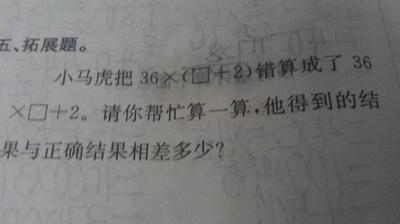 五、拓展题。
小马虎把 36×(□+2)错算成了 36
×□+2。请你帮忙算一算,他得到的结
果与正确结果相差多少?